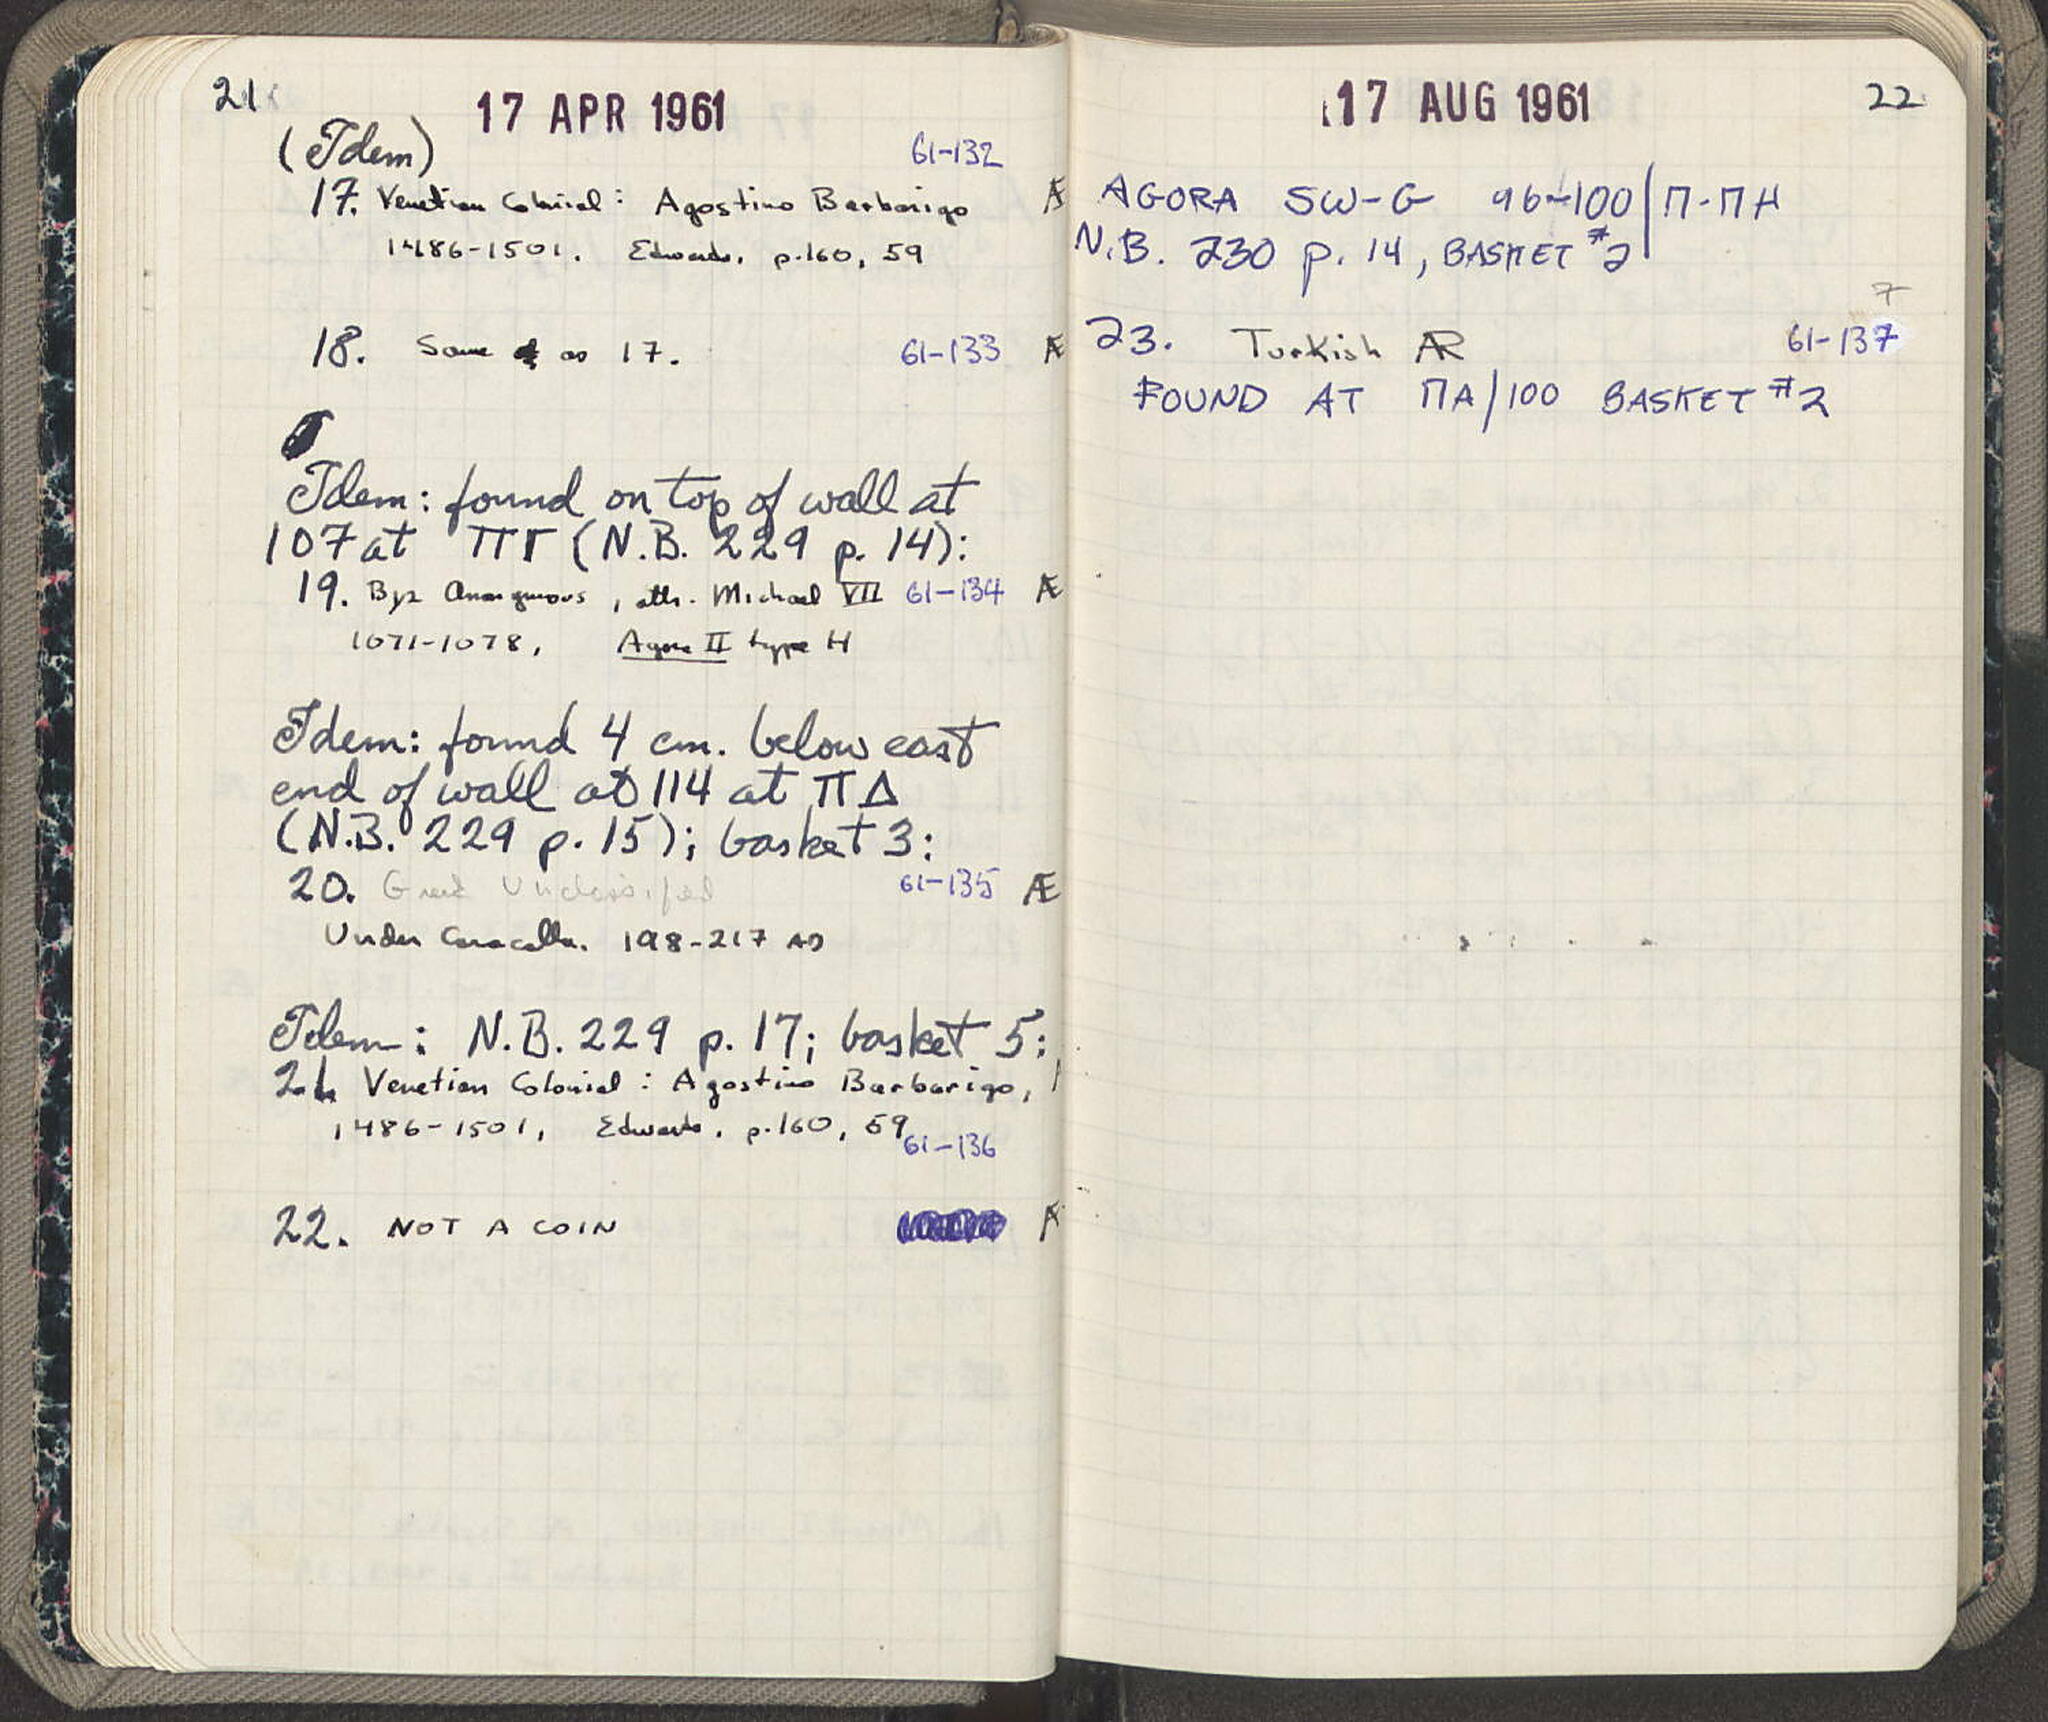 21
17 APR 1961
(Idem) 61-132
17. Venetian Colonial: Agostino Barbarigo Æ
1486-1501. Edwards, p.160, 59
18. Same as 17. 61-133 Æ
Idem: found on top of wall at
107 at ΠΓ (N.B. 229 p. 14):
19. Byz Anonymous, attr. Michael VII 61-134 Æ
1071-1078, Agora II type H
Idem: found 4 cm. below east
end of wall at 114 at ΠΔ
(N.B. 229 p. 15); basket 3:
20. Greek Unclassified 61-135 Æ
Under Caracalla. 198-217 AD
Idem: N.B. 229 p. 17; basket 5:
21. Venetian Colonial: Agostino Barbarigo,
1486-1501, Edwards, p.160, 59
61-136
22. NOT A COIN Æ
17 AUG 1961
22
AGORA SW-G 96-100/Π-ΠΗ
N.B. 230 p. 14, BASKET #2
7
23. Turkish AR 61-137
FOUND AT ΠΑ/100 BASKET #2